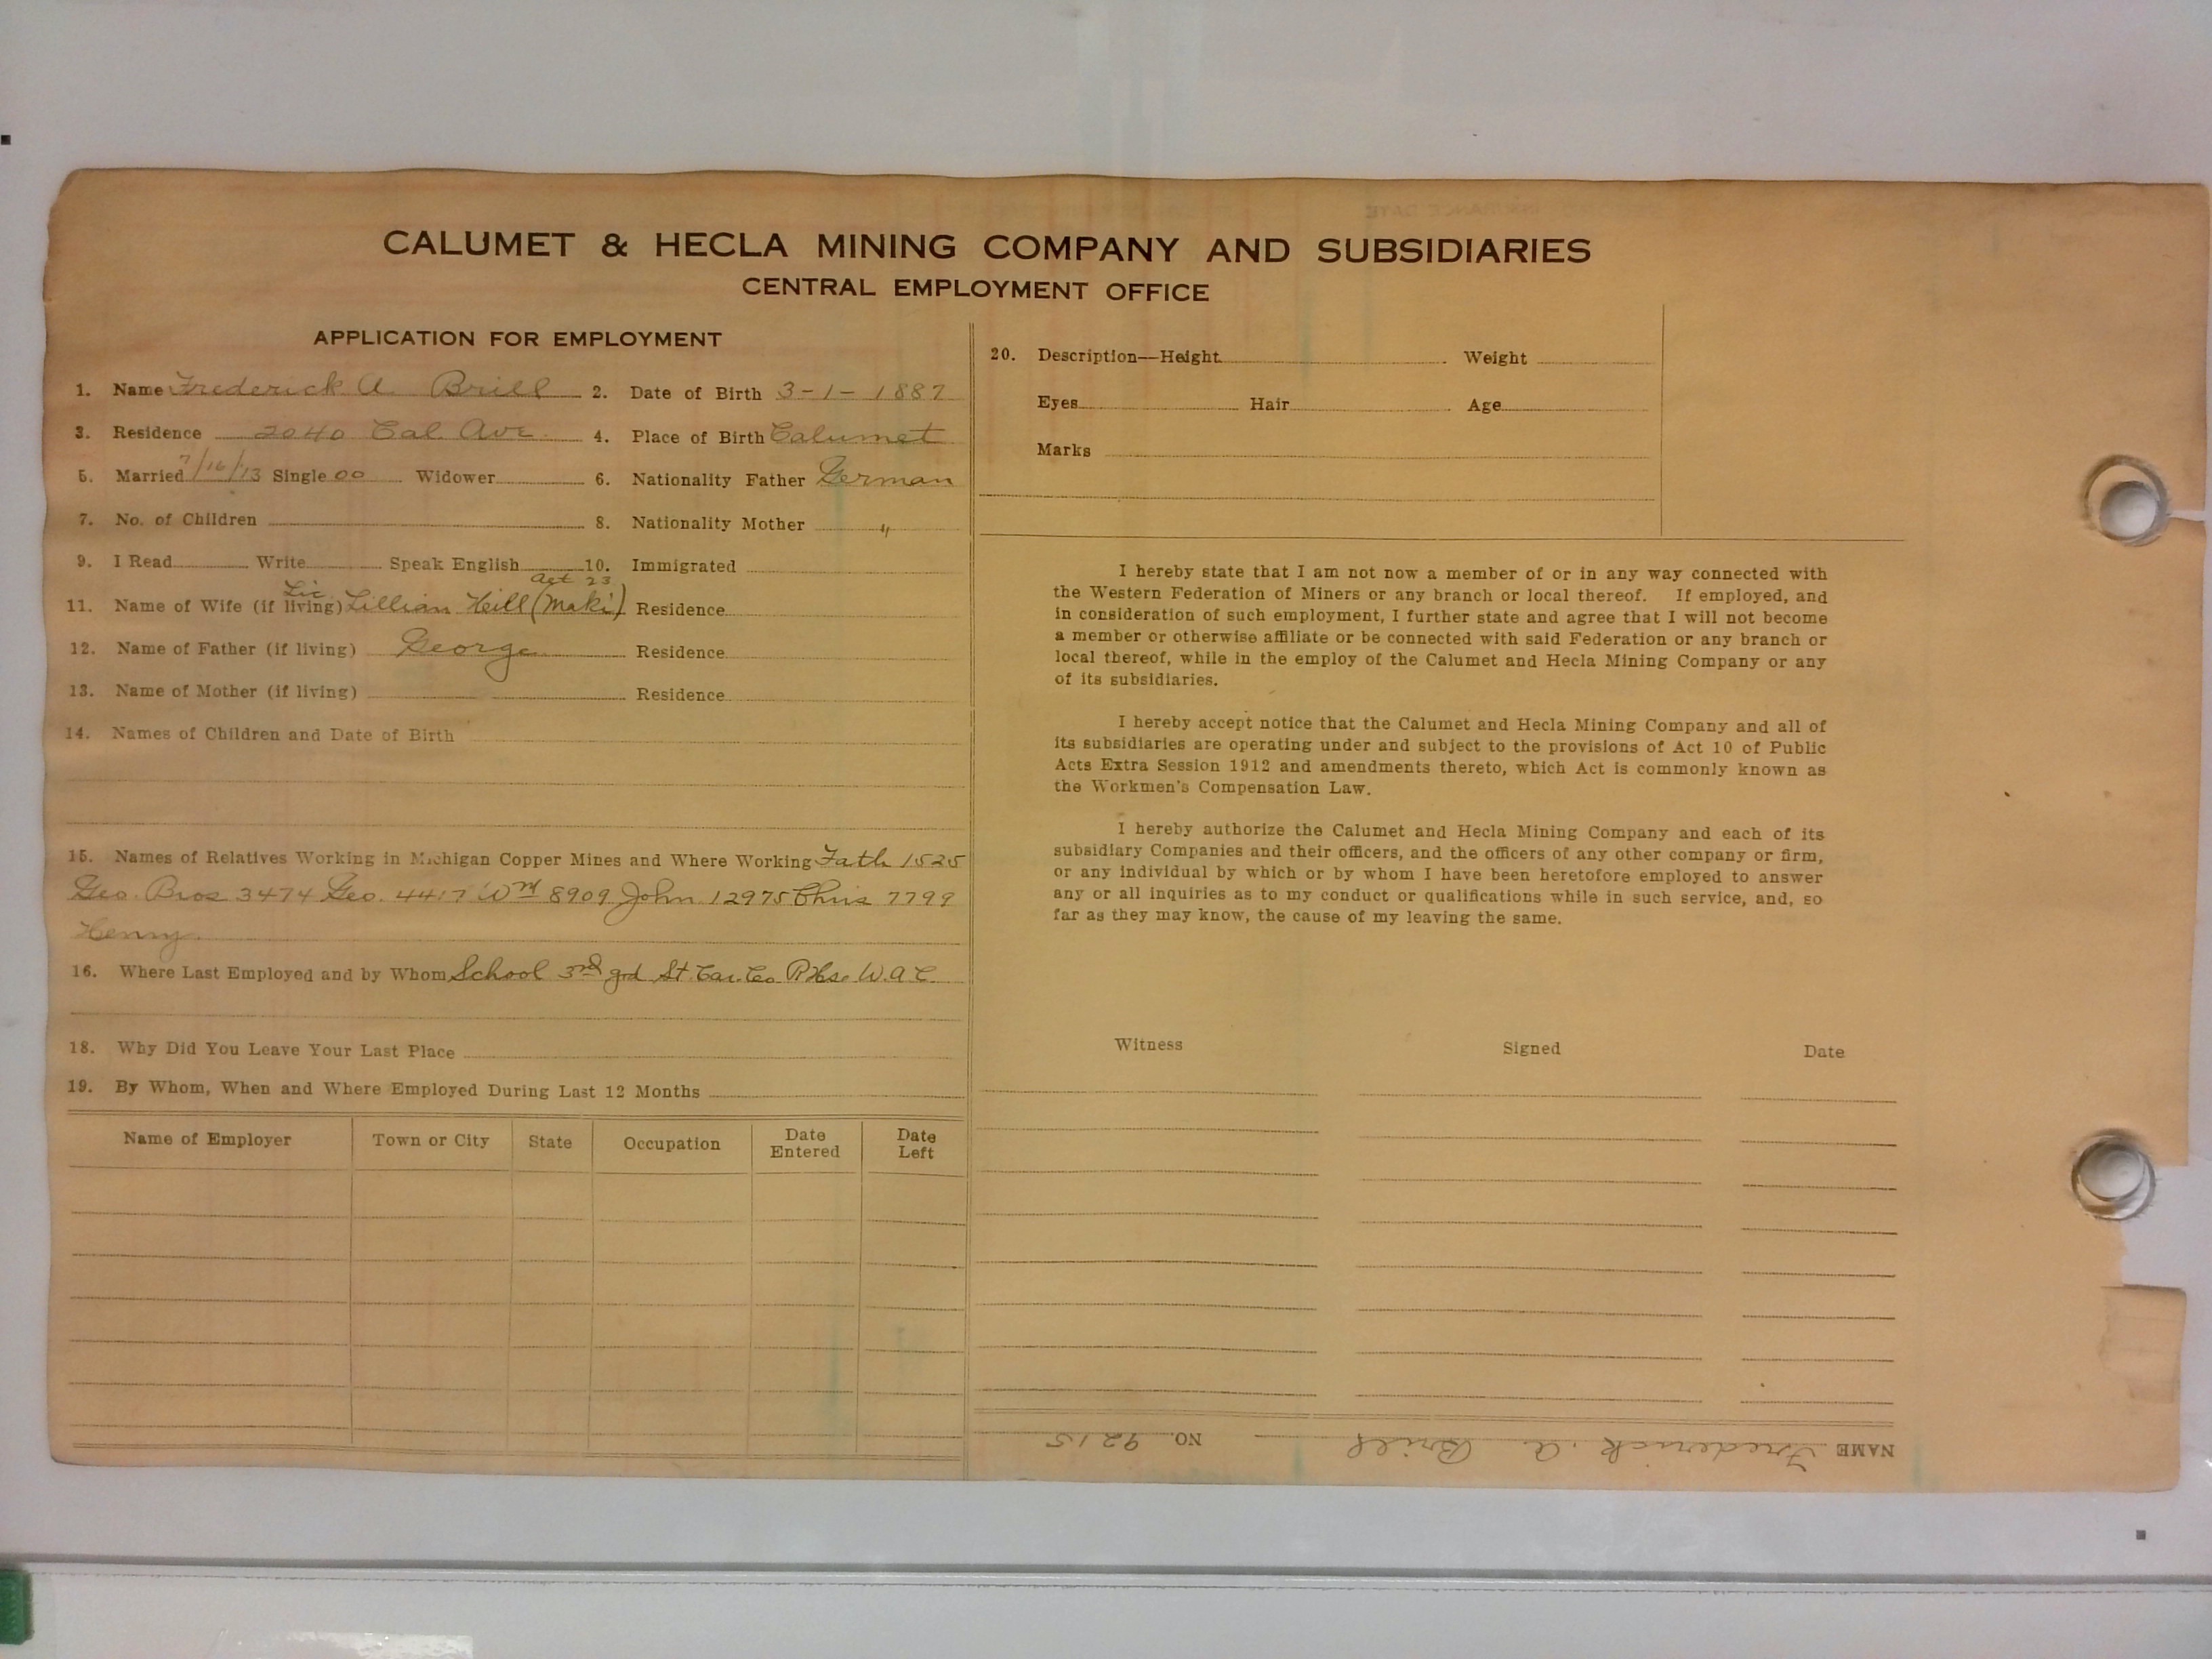 CALUMET & HECLA MINING COMPANY AND SUBSIDIARIES
CENTRAL EMPLOYMENT OFFICE
APPLICATION FOR EMPLOYMENT
1. Name Frederick A. Brill 2. Date of Birth 3-1-1887
3. Residence 2040 Cal. Ave. 4. Place of Birth Calumet
5. Married 7/16/13 Single 00 Widower 6. Nationality Father German
7. No. of Children 8. Nationality Mother "
9. I Read Write Speak English 10. Immigrated
Lic. 23
11. Name of Wife (if living) Lillian Heill (Maki) Residence
12. Name of Father (if living) George Residence
13. Name of Mother (if living) Residence
14. Names of Children and Date of Birth
15. Names of Relatives Working in Michigan Copper Mines and Where Working Fath 1525
Geo. Bros 3474 Geo. 4417 Wm 8909 John 12975 Chris 7799
Henry.
16. Where Last Employed and by Whom School 3rd grd St. Car. Co. R.Hse W.A.C.
18. Why Did You Leave Your Last Place
19. By Whom, When and Where Employed During Last 12 Months
Name of Employer Town or City State Occupation Date Entered Date Left
20. Description—Height Weight
Eyes Hair Age
Marks
I hereby state that I am not now a member of or in any way connected with
the Western Federation of Miners or any branch or local thereof. If employed, and
in consideration of such employment, I further state and agree that I will not become
a member or otherwise affiliate or be connected with said Federation or any branch or
local thereof, while in the employ of the Calumet and Hecla Mining Company or any
of its subsidiaries.
I hereby accept notice that the Calumet and Hecla Mining Company and all of
its subsidiaries are operating under and subject to the provisions of Act 10 of Public
Acts Extra Session 1912 and amendments thereto, which Act is commonly known as
the Workmen's Compensation Law.
I hereby authorize the Calumet and Hecla Mining Company and each of its
subsidiary Companies and their officers, and the officers of any other company or firm,
or any individual by which or by whom I have been heretofore employed to answer
any or all inquiries as to my conduct or qualifications while in such service, and, so
far as they may know, the cause of my leaving the same.
Witness Signed Date
NAME Frederick A. Brill NO. 9215